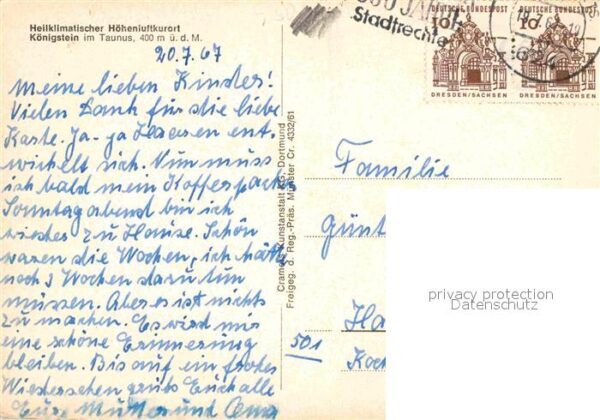 Heilklimatischer Höhenluftkurort
Königstein im Taunus, 400 m ü. d. M.
20.7.67
Meine lieben Kinder!
Vielen Dank für die liebe
Karte. Ja-ja Haesen ent,
wickelt sich. Nun muss
ich bald mein Kofferpacken
Sonntagabend bin ich
wieder zu Hause. Schön
waren die Wochen, ich hätte
noch 3 Wochen dazu tun
müssen. Aber es ist nichts
zu machen. Es wird mir
eine schöne Erinnerung
bleiben. Bis auf ein frohes
Wiedersehen grüs Euch alle
Eure Mutter und Oma
Cramers Kunstanstalt KG, Dortmund
Freigeg. d. Reg.-Präs. Münster Cr. 4332/61
JAHRE
Stadtrechte
624
DEUTSCHE BUNDESPOST
10
DRESDEN/SACHSEN
DEUTSCHE BUNDESPOST
10
DRESDEN/SACHSEN
Familie
Günt
Ha
501
Koch
privacy protection
Datenschutz